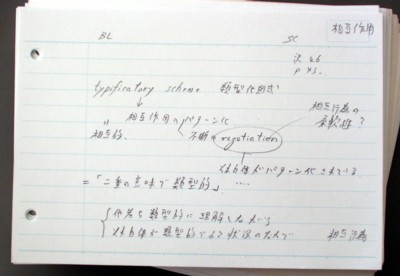 BL
SC
相互作用
注26
p 43.
typificatory scheme 類型化図式
相互作用のパターン化
相互的
不断のnegotiation
相互行為の
柔軟性?
それ自体がパターン化されている
=「二重の意味で類型的」……
他者を類型的に理解しながら
それ自体が類型的である状況のなかで
相互行為